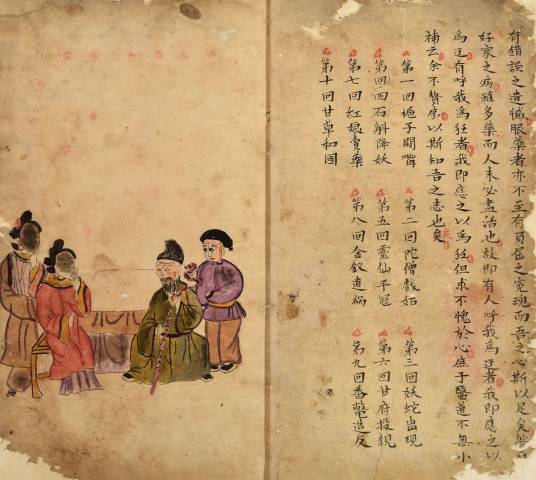 有錯誤之遺憾服藥者亦不至有負屈之冤魂而吾之心斯以足矣
好家之病雖多藥而人未必盡活也故即有人呼我為迂者我即應之以
為迂有呼我為狂者我即應之以為狂但求不愧於心庶于醫道不無小
補云余不贅序以斯知吾之志也矣
第一回梔子鬪嘴 第二回陀僧戲姑 第三回妖蛇出現
第四回石斛降妖 第五回靈仙平冠 第六回甘府投親
第七回紅娘賣藥 第八回金釵遺禍 第九回番鱉造反
第十回甘草和國